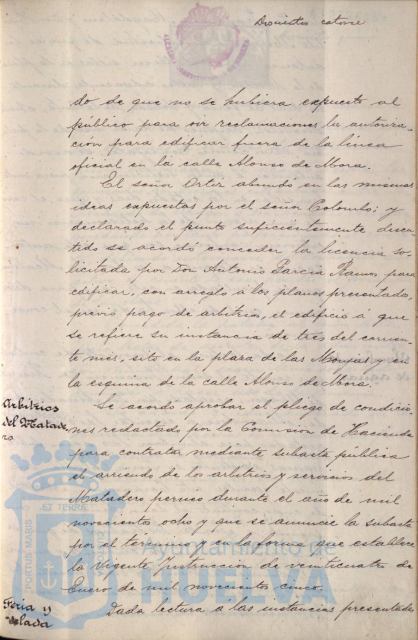 Doscientos catorce
do de que no se hubiera expuesto al
público para oir reclamaciones la autoriza-
cion para edificar fuera de la linea
oficial en la calle Alonso de Mora.
El señor Ortiz abundó en las mismas
ideas expuestas por el señor Colombo; y
declarado el punto suficientemente discu-
tido se acordó conceder la licencia so-
licitada por Don Antonio Garcia Ramos para
edificar, con arreglo á los planos presentados,
previo pago de arbitrios, el edificio á que
se refiere su instancia de tres del corrien-
te mes, sito en la plaza de las Monjas y en
la esquina de la calle Alonso de Mora.
Arbitrios
del Matade-
ro
Se acordó aprobar el pliego de condicio-
nes redactado por la Comision de Hacienda
para contratar mediante subasta publica
el arriendo de los arbitrios y servicios del
Matadero perruno durante el año de mil
novecientos ocho y que se anuncie la subasta
por el término y en la forma que establece
la vigente Instruccion de veinticuatro de
Enero de mil novecientos cinco.
Feria y
Velada
Dada lectura a las instancias presentadas
PORTUS MARIS ET TERRAE
Ayuntamiento de
HUELVA